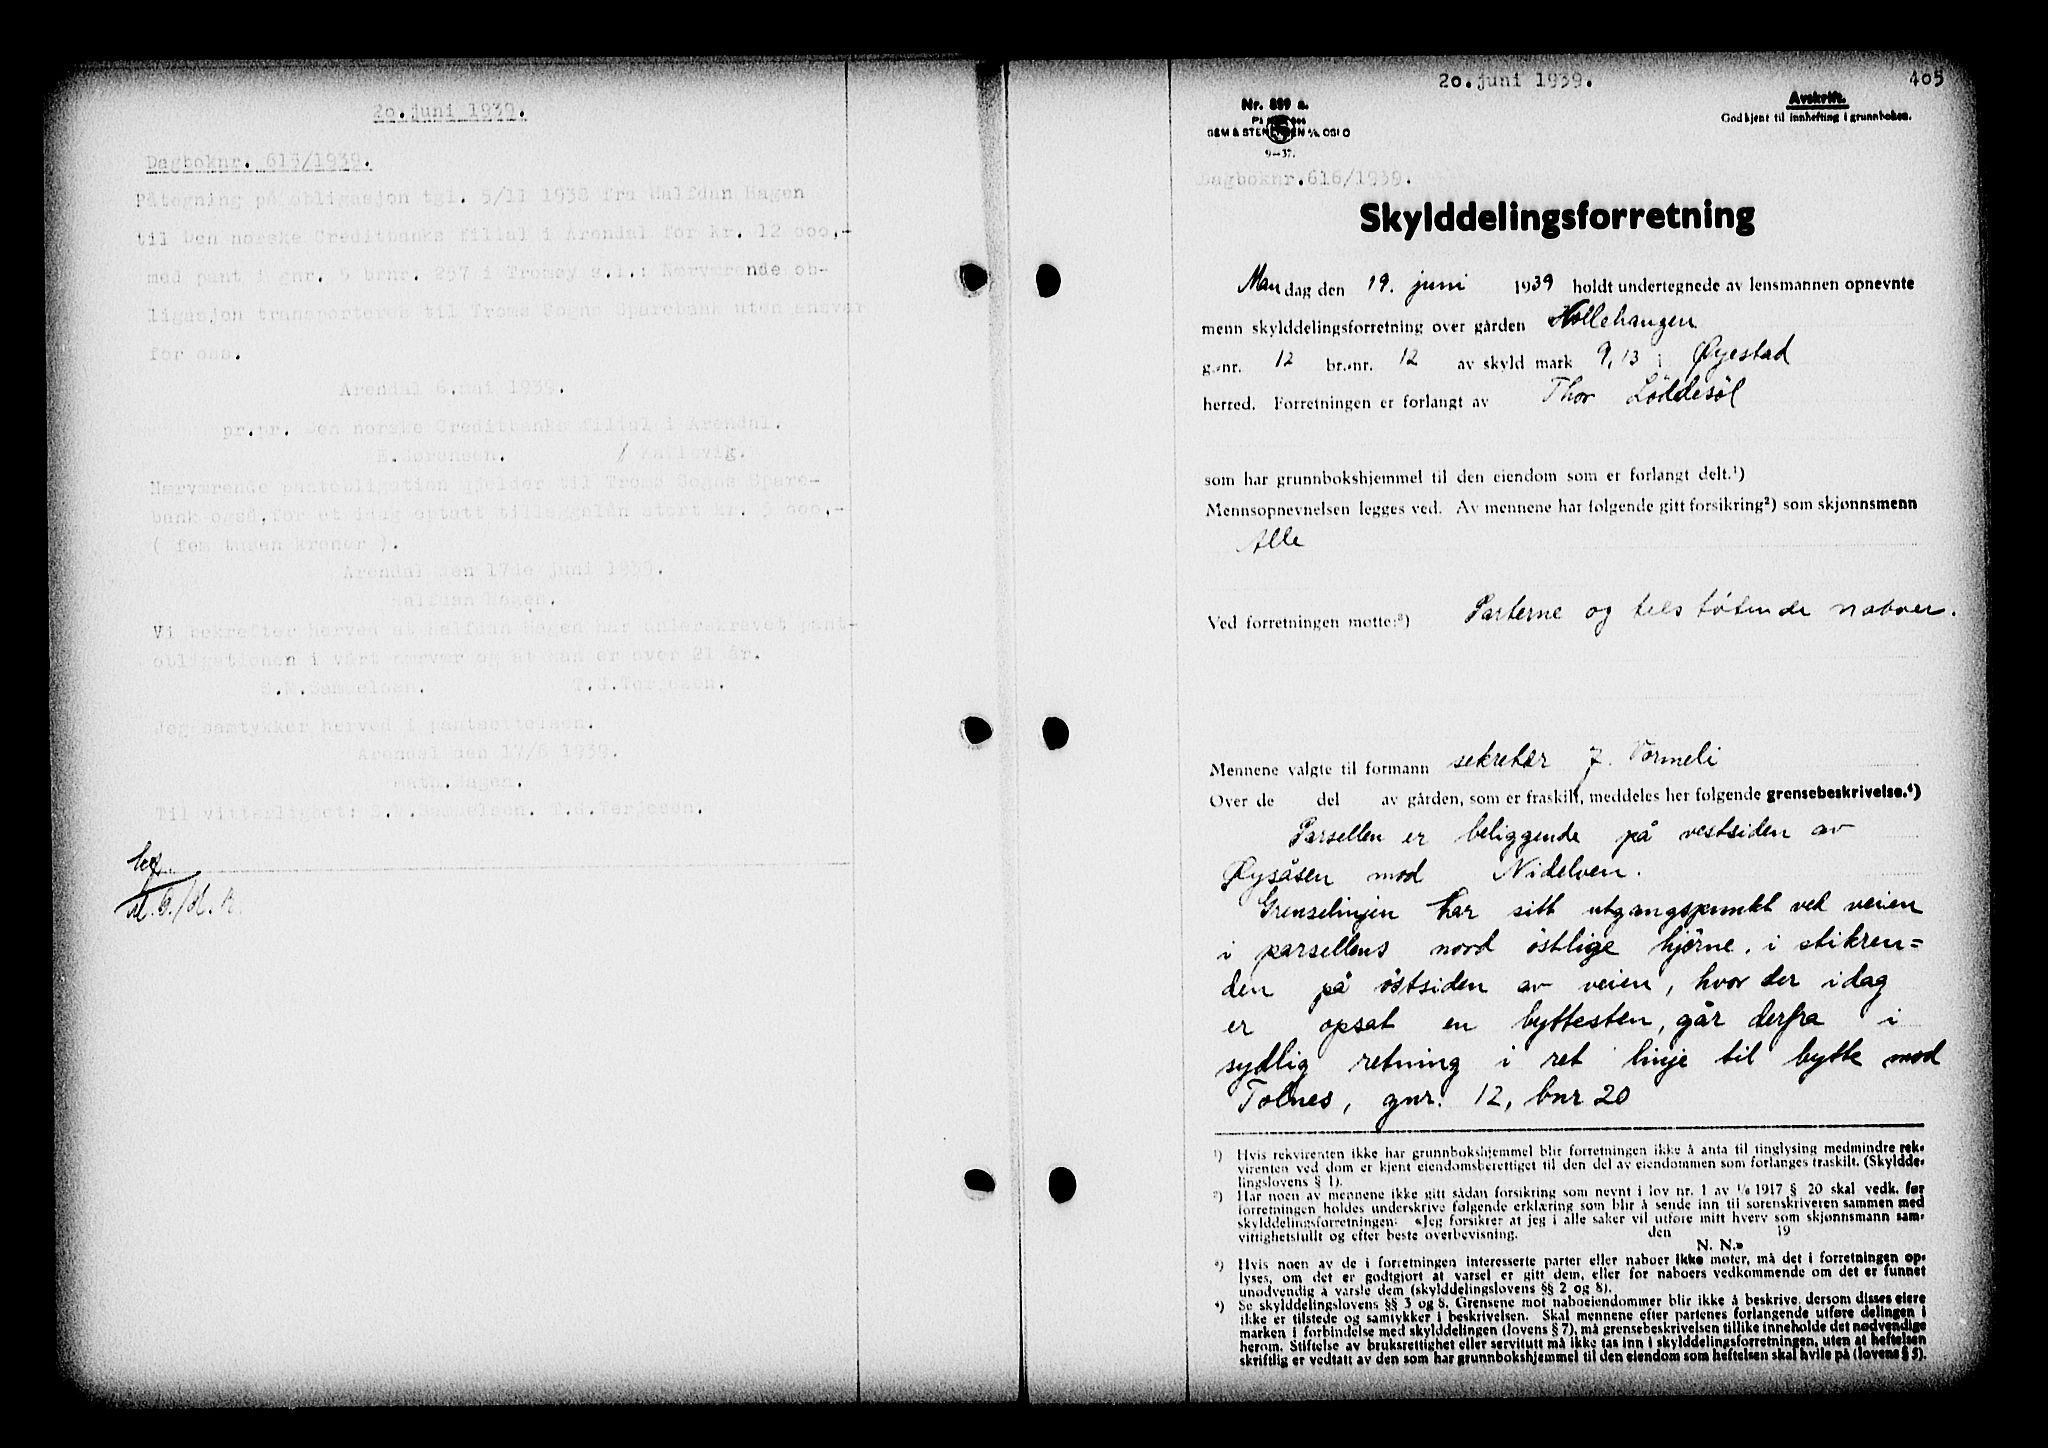 20. juni 1939.
Dagboknr. 615/1939.
Påtegning på obligasjon tgl. 5/11 1938 fra Halfdan Hagen
til Den norske Creditbanks filial i Arendal for kr. 12 000,-
med pant i gnr. 5 brnr. 257 i Tromøy s.l.: Nærværende ob-
ligasjon transporteres til Tromø Sogns Sparebank uten ansvar
for oss.
Arendal 6. mai 1939.
pr.pr. Den norske Creditbanks filial i Arendal.
E.Sørensen. / Kallevig.
Nærværende pantobligation gjelder til Tromø Sogns Spare-
bank også, for et idag optatt tilleggslån stort kr. 5 000,-
( fem tusen kroner ).
Arendal den 17de juni 1939.
Halfdan Hagen.
Vi bekrefter herved at Halfdan Hagen har underskrevet pant-
obligationen i vårt nærvær og at han er over 21 år.
S.M.Samuelsen. T.G.Terjesen.
Jeg samtykker herved i pantsettelsen.
Arendal den 17/6 1939.
Math.Hagen.
Til vitterlighet: S.M.Samuelsen. T.G.Terjesen.
20. juni 1939.
405
Nr. 899 a.
Avskrift.
Godkjent til innhefting i grunnboken.
SEM & STENERSEN A/S OSLO
9—37.
Dagboknr. 616/1939.
Skylddelingsforretning
Mandag den 19. juni 1939 holdt undertegnede av lensmannen opnevnte
menn skylddelingsforretning over gården Hollehaugen
g.-nr. 12 br.-nr. 12 av skyld mark 9,13 i Øyestad
herred. Forretningen er forlangt av Thor Løddesøl
som har grunnbokshjemmel til den eiendom som er forlangt delt.¹)
Mennsopnevnelsen legges ved. Av mennene har følgende gitt forsikring²) som skjønnsmenn
Alle
Ved forretningen møtte:³) Parterne og tilstøtende naboer.
Mennene valgte til formann sekretær J. Vormeli
Over de del av gården, som er fraskilt, meddeles her følgende grensebeskrivelse.⁴)
Parsellen er beliggende på vestsiden av
Øysåsen mod Nidelven.
Grenselinjen har sitt utgangspunkt ved veien
i parsellens nord østlige hjørne, i stikren=
den på østsiden av veien, hvor der idag
er opsat en byttesten, går derfra i
sydlig retning i ret linje til bytte mod
Tolnes, gnr. 12, bnr 20
¹) Hvis rekvirenten ikke har grunnbokshjemmel blir forretningen ikke å anta til tinglysing medmindre rek-
virenten ved dom er kjent eiendomsberettiget til den del av eiendommen som forlanges fraskilt. (Skyldde-
lingslovens § 1).
²) Har noen av mennene ikke gitt sådan forsikring som nevnt i lov nr. 1 av 1/6 1917 § 20 skal vedk. før
forretningen holdes underskrive følgende erklæring som blir å sende inn til sorenskriveren sammen med
skylddelingsforretningen: «Jeg forsikrer at jeg i alle saker vil utføre mitt hverv som skjønnsmann sam-
vittighetsfullt og efter beste overbevisning. den 19
N. N.»
³) Hvis noen av de i forretningen interesserte parter eller naboer ikke møter, må det i forretningen op-
lyses, om det er godtgjort at varsel er gitt dem, eller for naboers vedkommende om det er funnet
unødvendig å varsle dem (skylddelingslovens §§ 2 og 8).
⁴) Se skylddelingslovens §§ 3 og 8. Grensene mot naboeiendommer blir ikke å beskrive, dersom disses eiere
ikke er tilstede og samtykker i beskrivelsen. Skal mennene efter partenes forlangende utføre delingen i
marken i forbindelse med skylddelingen (lovens § 7), må grensebeskrivelsen tillike inneholde det nødvendige
herom. Stiftelse av bruksrettighet eller servitutt må ikke tas inn i skylddelingsforretningen, uten at heftelsen
skriftlig er vedtatt av den som har grunnbokshjemmel til den eiendom som heftelsen skal hvile på (lovens § 5).